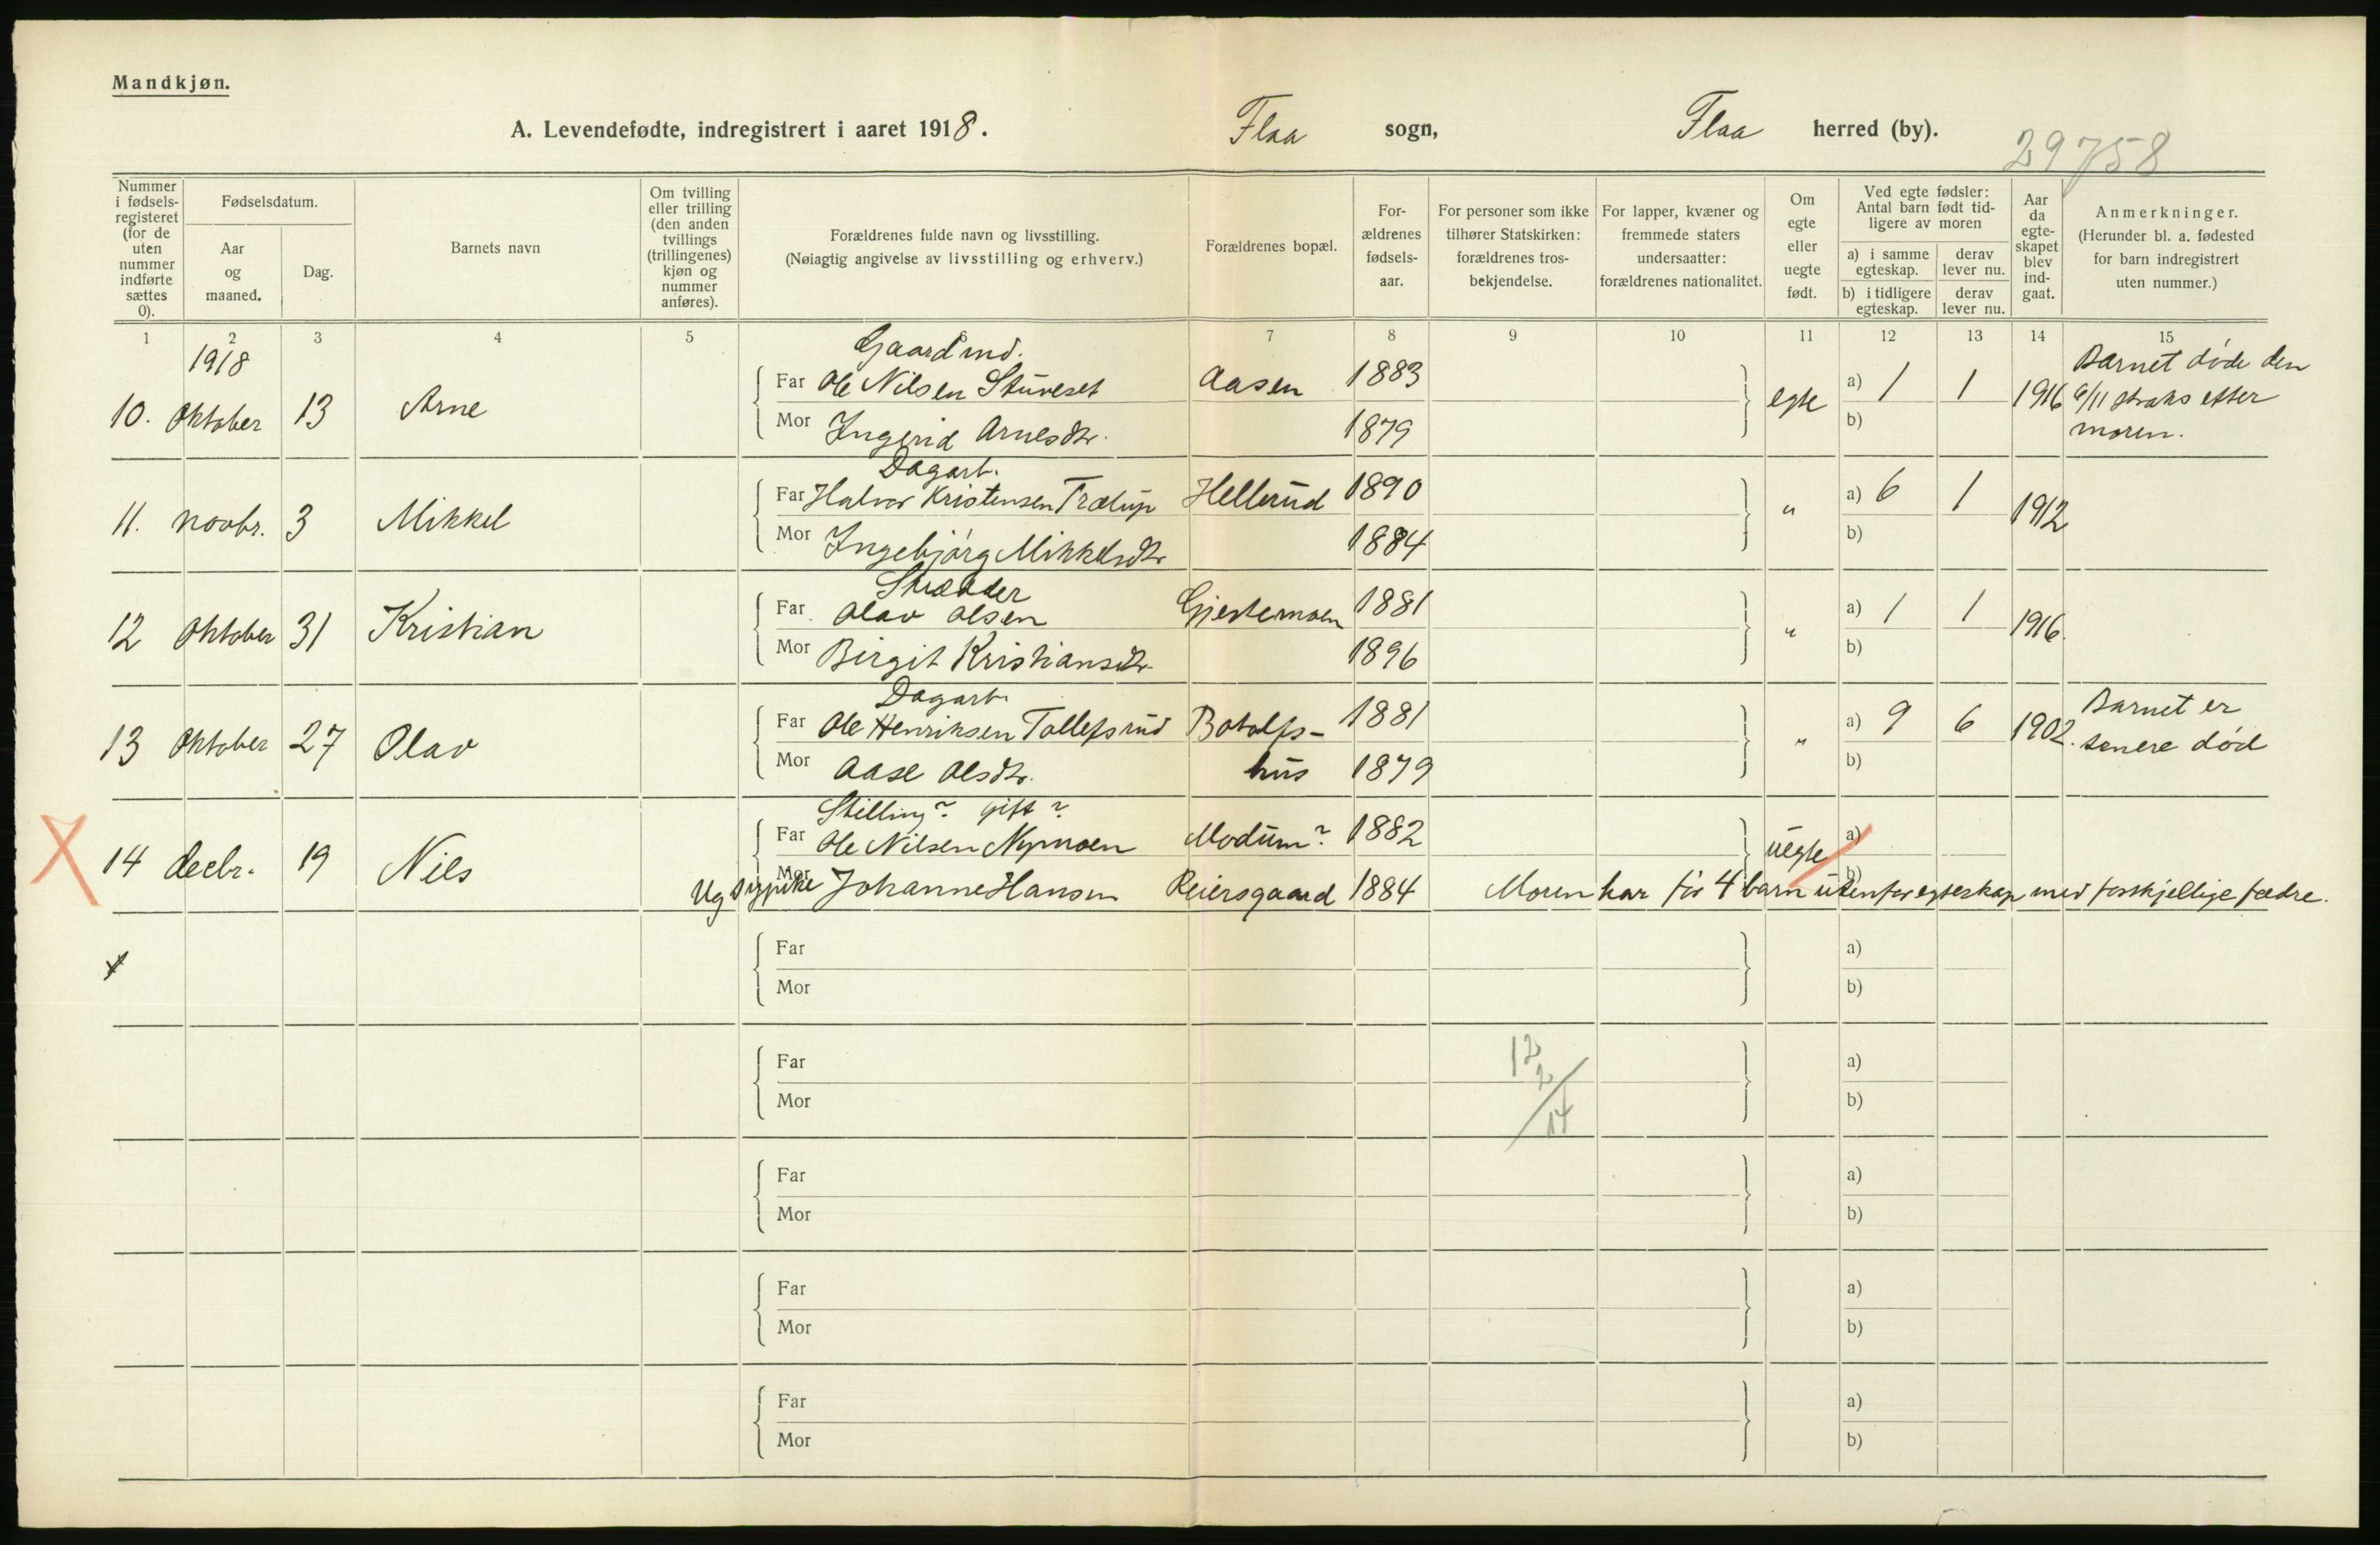 Mandkjøn.
A. Levendefødte, indregistrert i aaret 1918. Flaa sogn, Flaa herred (by).
29758
Nummer i fødsels-registeret (for de uten nummer indførte sættes 0).
Fødselsdatum.
Aar og maaned.
Dag.
Barnets navn
Om tvilling eller trilling (den anden tvillings (trillingenes) kjøn og nummer anføres).
Forældrenes fulde navn og livsstilling.
(Nøiagtig angivelse av livsstilling og erhverv.)
Forældrenes bopæl.
For-ældrenes fødsels-aar.
For personer som ikke tilhører Statskirken: forældrenes tros-bekjendelse.
For lapper, kvæner og fremmede staters undersaatter: forældrenes nationalitet.
Om egte eller uegte født.
Ved egte fødsler: Antal barn født tid-ligere av moren
a) i samme egteskap. derav lever nu.
b) i tidligere egteskap. derav lever nu.
Aar da egte-skapet blev ind-gaat.
Anmerkninger.
(Herunder bl. a. fødested for barn indregistrert uten nummer.)
1 2 3 4 5 7 8 9 10 11 12 13 14 15
1918 Gaardmd. Barnet døde den
10. Oktober 13 Arne Far Ole Nilsen Stuveset Aasen 1883 egte a) 1 1 1916 6/11 straks efter
Mor Ingerid Arnesdtr. 1879 b) moren.
Dagarb.
11. novbr. 3 Mikkel Far Halvor Kristensen Trælup Hellerud 1890 " a) 6 1 1912
Mor Ingebjørg Mikkelsdtr 1884 b)
Skrædder
12 Oktober 31 Kristian Far Olav Olsen Gjestemoen 1881 " a) 1 1 1916.
Mor Birgit Kristiansdtr. 1896 b)
Dagarb. Barnet er
13 Oktober 27 Olav Far Ole Henriksen Tollefsrud Botolfs- 1881 " a) 9 6 1902. senere død
Mor Aase Olsdtr. hus 1879 b)
Stilling? gift?
14 decbr. 19 Nils Far Ole Nilsen Nymoen Modum? 1882 uegte a)
Mor Ug sypike Johanne Hansen Reiersgaard 1884 Moren har før 4 barn utenfor egteskap med forskjellige fædre. b)
Far a)
Mor b)
Far 12 a)
2
Mor 14 b)
Far a)
Mor b)
Far a)
Mor b)
Far a)
Mor b)